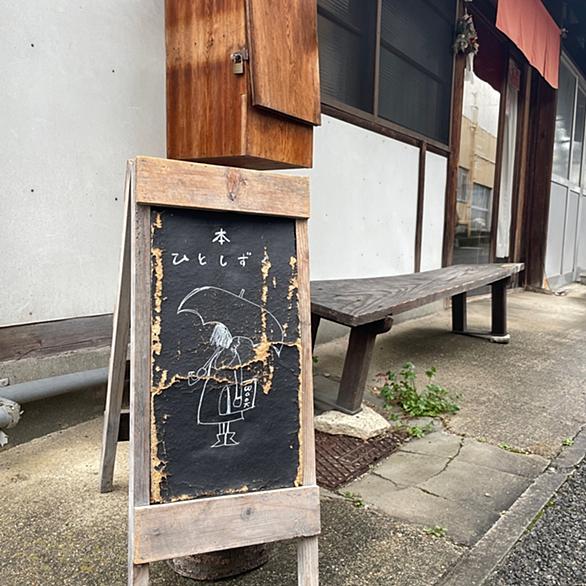 本
ひとしずく
BOOK